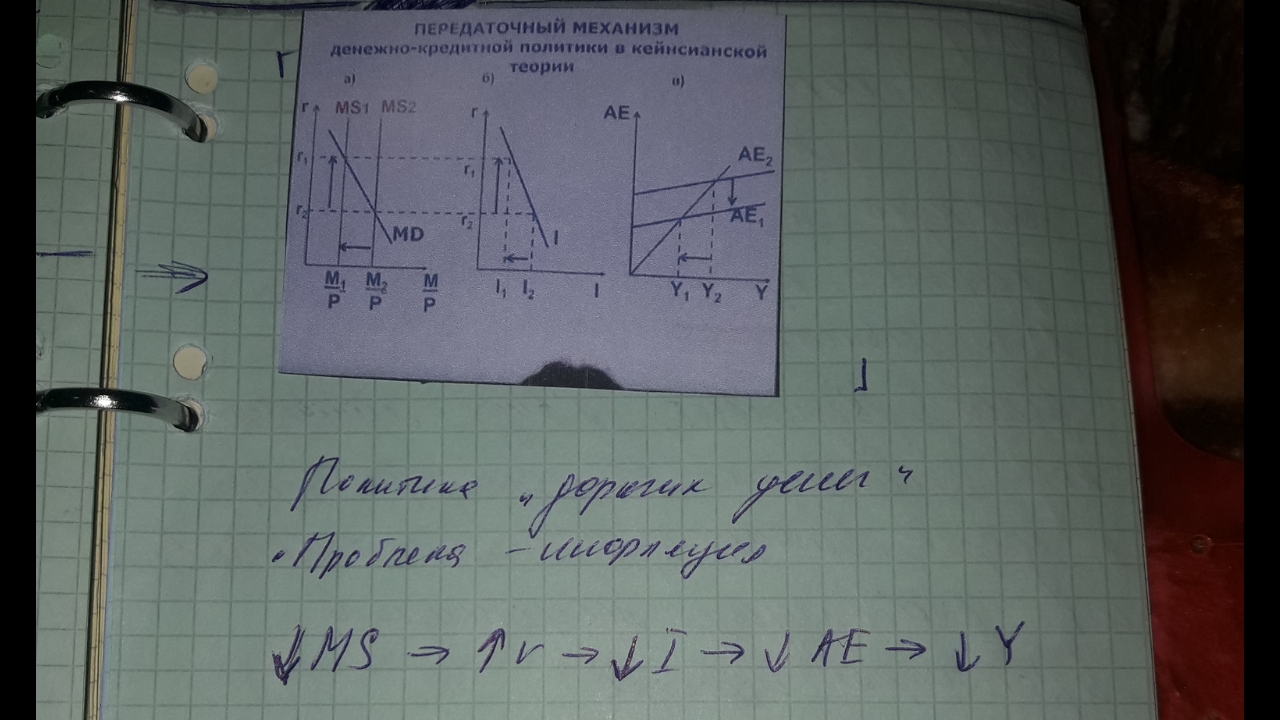 ПЕРЕДАТОЧНЫЙ МЕХАНИЗМ
денежно-кредитной политики в кейнсианской
теории
а) б) в)
r MS1 MS2 r AE
r₁ r₁ AE₂
r₂ r₂ AE₁
MD I
M₁/P M₂/P M/P I₁ I₂ I Y₁ Y₂ Y
Политика „дорогих денег"
• Проблема – инфляция
↓MS → ↑r → ↓I → ↓AE → ↓Y